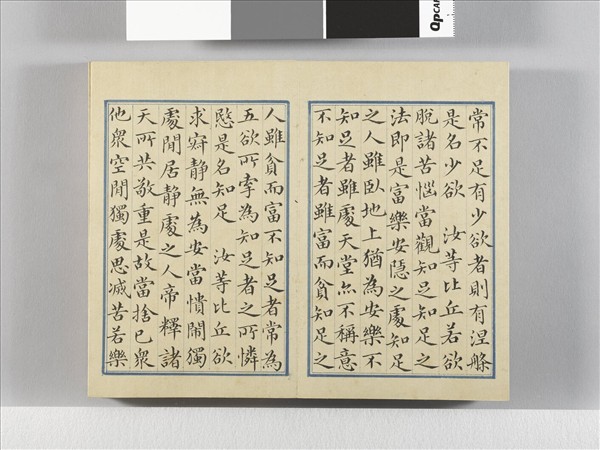 常不足有少欲者則有涅槃
是名少欲　汝等比丘若欲
脫諸苦惱當觀知足知足之
法即是富樂安隱之處知足
之人雖臥地上猶為安樂不
知足者雖處天堂亦不稱意
不知足者雖富而貧知足之
人雖貧而富不知足者常為
五欲所牽為知足者之所憐
愍是名知足　汝等比丘欲
求寂静無為安當憒閙獨
處閒居静處之人帝釋諸
天所共敬重是故當捨已衆
他衆空閒獨處思滅苦若樂
QPCAR